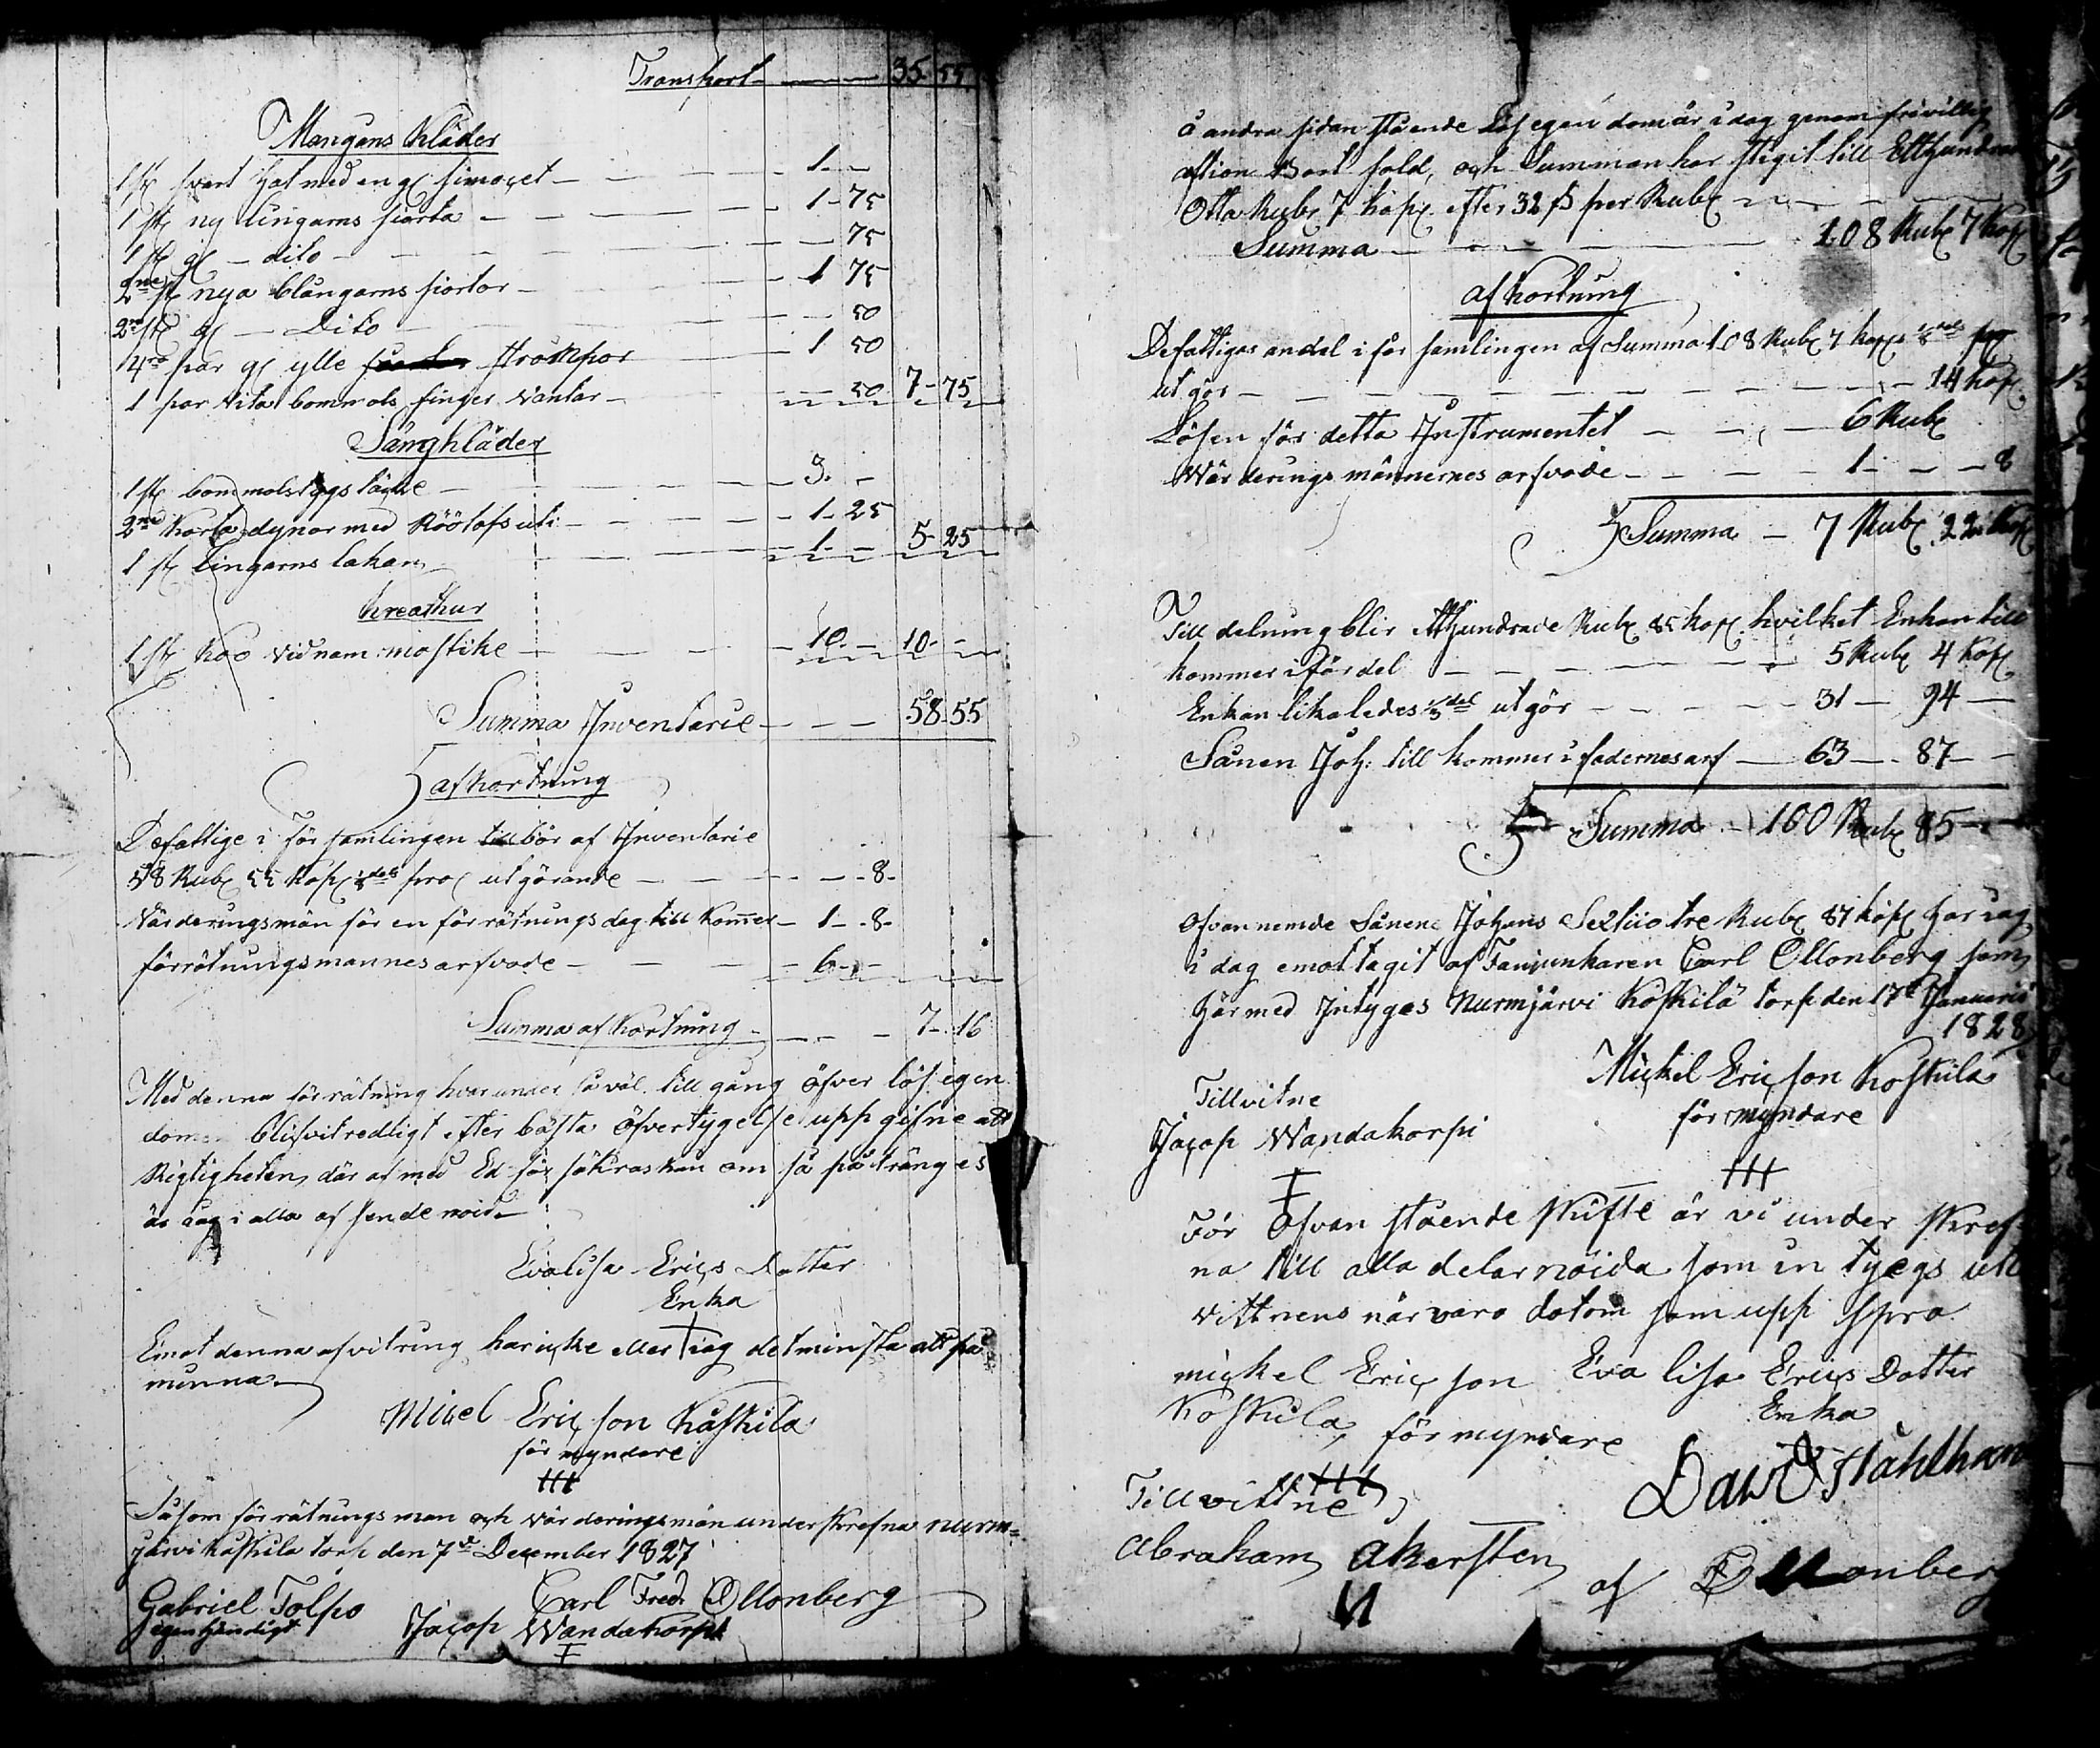 Transport 35 55
Mangans Kläder
1 st svart Hat med en gl simocet 1 -
1 st ny lingarns siorta 1 - 75
1 st gl - dito - 75
2ne st nya blångarns siortor 1 75
2ne st gl - Dito - 50
4ra par gl ylle strömpor 1 50
1 par vita bommols finger vantar - 50 7 - 75
Sängkläder
1 st bommolstygs täcke 3. -
2ne korta dynor med Röötofs uti 1 - 25
1 st lingarns lakan 1 - - 5 - 25
kreathur
1 st koo vid nam: mostike 10. - 10 - -
Summa Inventarie 58 55
afkortning
De fattige i för samlingen bör af Inventarie
58 Rub 55 Kop 1/8 del pro utgörande - - 8 -
Värderingsmän för en förrätnings dag till komer 1 - 8 -
förrätningsmannes arfvode 6 - -
Summa af kortning 7 - 16
Med denna förrätning hvarunder så väl till gång öfver lös egen
domen blifvit redligt efter bästa öfvertygelse upp gifne att
Rigtigheten där af med Ed för säkras kan om så på tränges
är iag i alla af sende nöid
Evalisa Erics Dotter
Enka
Emot denna afvitring har icke eller iag det minsta att på
minna
Micel Ericson Kaskila
för myndare
Såsom förrätnings man och värderingsmän underskrefna nurm=
järvi Kaskila torp den 7de December 1827
Carl Fred. Ollonberg
Gabriel Tolpo
egenhändigt
Jacop Wandakorpi
å andra sidan stående Lösegendom är i dag genom frivillig
aktion Bort sold, och Summan har stigit till Etthundra
Otta Rub 7 kop efter 32 ß per Rub
Summa 108 Rub 7 Kop
afkortning
De fattigas andel i för samlingen af Summa 108 Rub 7 kop 1/8 del
utgör 14 kop
Lösen för detta Instrumentet 6 Rub
Wärderings männernes arfvode 1 - - 8
Summa 7 Rub 22 Kop
Till delning blir Etthundrade Rub 85 kop hvilket Enkan till
kommer i fördel 5 Rub 4 kop
Enkan likaledes 1/3 del utgör 31 - 94 -
Sånen Joh: till kommer i fadernes arf 63 - 87 -
Summa 100 Rub 85 -
Ofvan nemde Sånens Johans Sextio tre Rub 87 kop har iag
i dag emottagit af Fanjunkaren Carl Ollonberg som
Härmed Intyges Nurmjärvi Koskila torp den 17de Januarii
1828
Mickel Ericson Koskila
för myndare
Tillvitne
Jacop Wandakorpi
För Ofvan stående skifte är vi under skref
na till alla delar nöida som in tyegs uti
vittnens närvaro dotom som upp
mickel Ericson Koskila, för myndare
Eva lisa Erics Dotter
Enka
Tillvittne
Abraham Akersten
David Ståhlhan
af Ollonberg